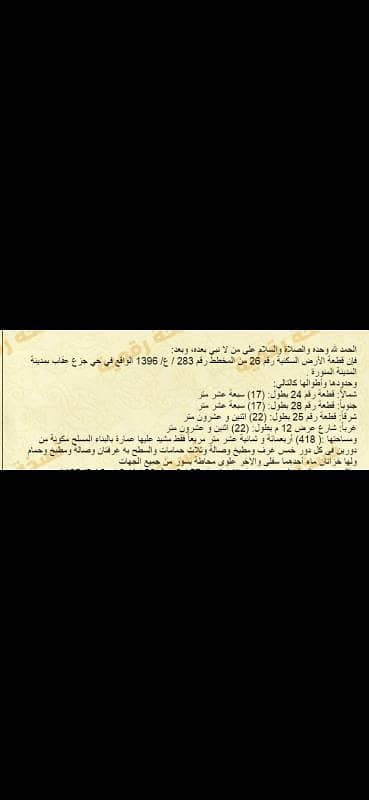 الحمد لله وحده والصلاة والسلام على من لا نبي بعده، وبعد:
فإن قطعة الأرض السكنية رقم 26 من المخطط رقم 283 / ع/ 1396 الواقع في حي جزع عقاب بمدينة
المدينة المنورة .
وحدودها وأطوالها كالتالي:
شمالاً: قطعة رقم 24 بطول: (17) سبعة عشر متر
جنوباً: قطعة رقم 28 بطول: (17) سبعة عشر متر
شرقاً: قطعة رقم 25 بطول: (22) اثنين و عشرون متر
غرباً: شارع عرض 12 م بطول: (22) اثنين و عشرون متر
ومساحتها :( 418) أربعمائة و ثمانية عشر متر مربعاً فقط مشيد عليها عمارة بالبناء المسلح مكونة من
دورين في كل دور خمس غرف ومطبخ وصالة وثلاث حمامات والسطح به غرفتان وصالة ومطبخ وحمام
ولها خزانان ماء أحدهما سفلي والآخر علوي محاطة بسور من جميع الجهات